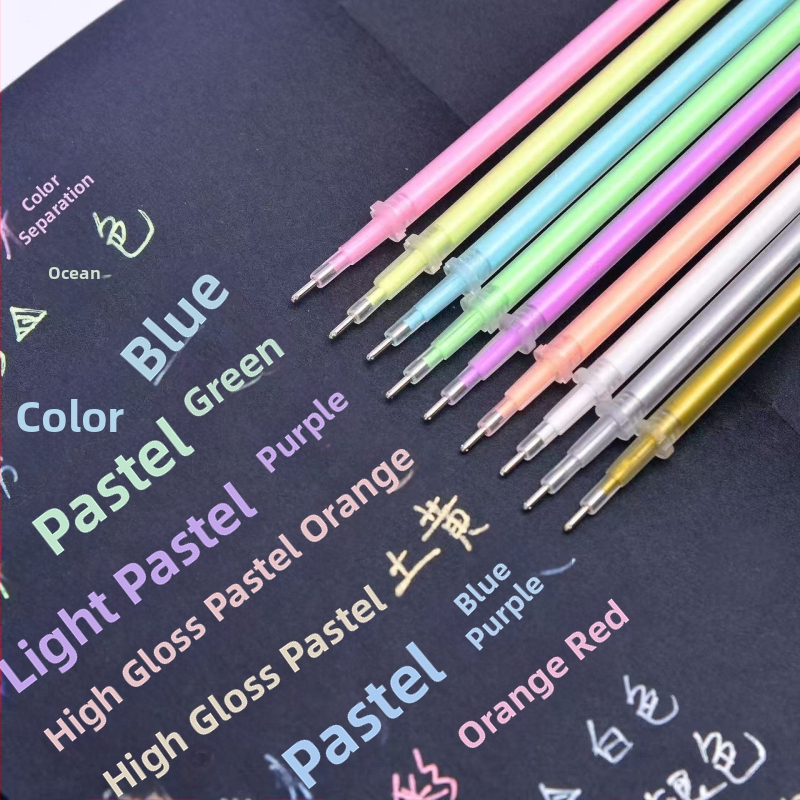 Color
Separation
色
Ocean
Blue
Color
Pastel Green
Light Pastel Purple
High Gloss Pastel Orange
High Gloss Pastel 土黄
Pastel Blue
Purple
Orange Red
彩
白色
银色